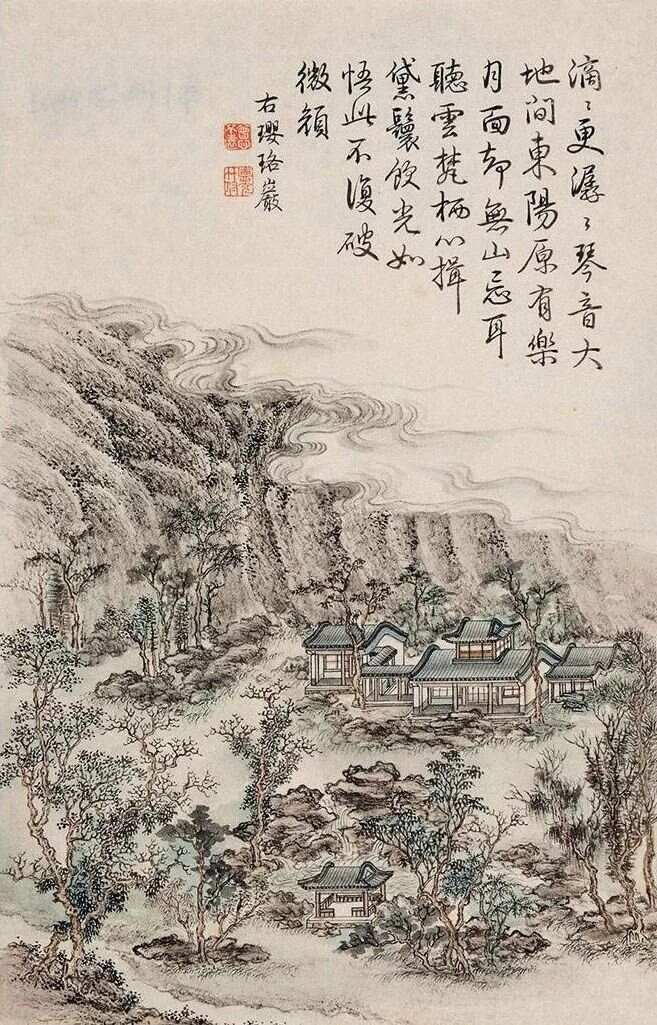 滴〻更潺〻琴音大
地間東陽原有樂
月面却無山忘耳
聽雲梵栖心揖
黛鬟飲光如
悟此不復破
微顔
右瓔珞巖